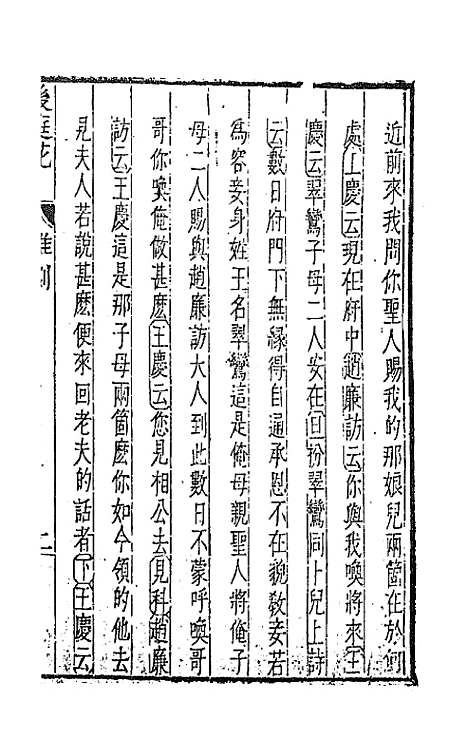 近前來我問你聖人賜我的那娘兒兩箇在於何
處王慶云現在府中趙廉訪云你與我喚將來王
慶云翠鸞子母二人安在旦扮翠鸞同卜兒上詩
云數日府門下無緣得自通承恩不在貌敎妾若
爲容妾身姓王名翠鸞這是俺母親聖人將俺子
母二人賜與趙廉訪大人到此數日不蒙呼喚哥
哥你喚俺做甚麽王慶云您見相公去見科趙廉
訪云王慶這是那子母兩箇麽你如今領的他去
見夫人若說甚麽便來回老夫的話者下王慶云
後庭花 雜劇 二